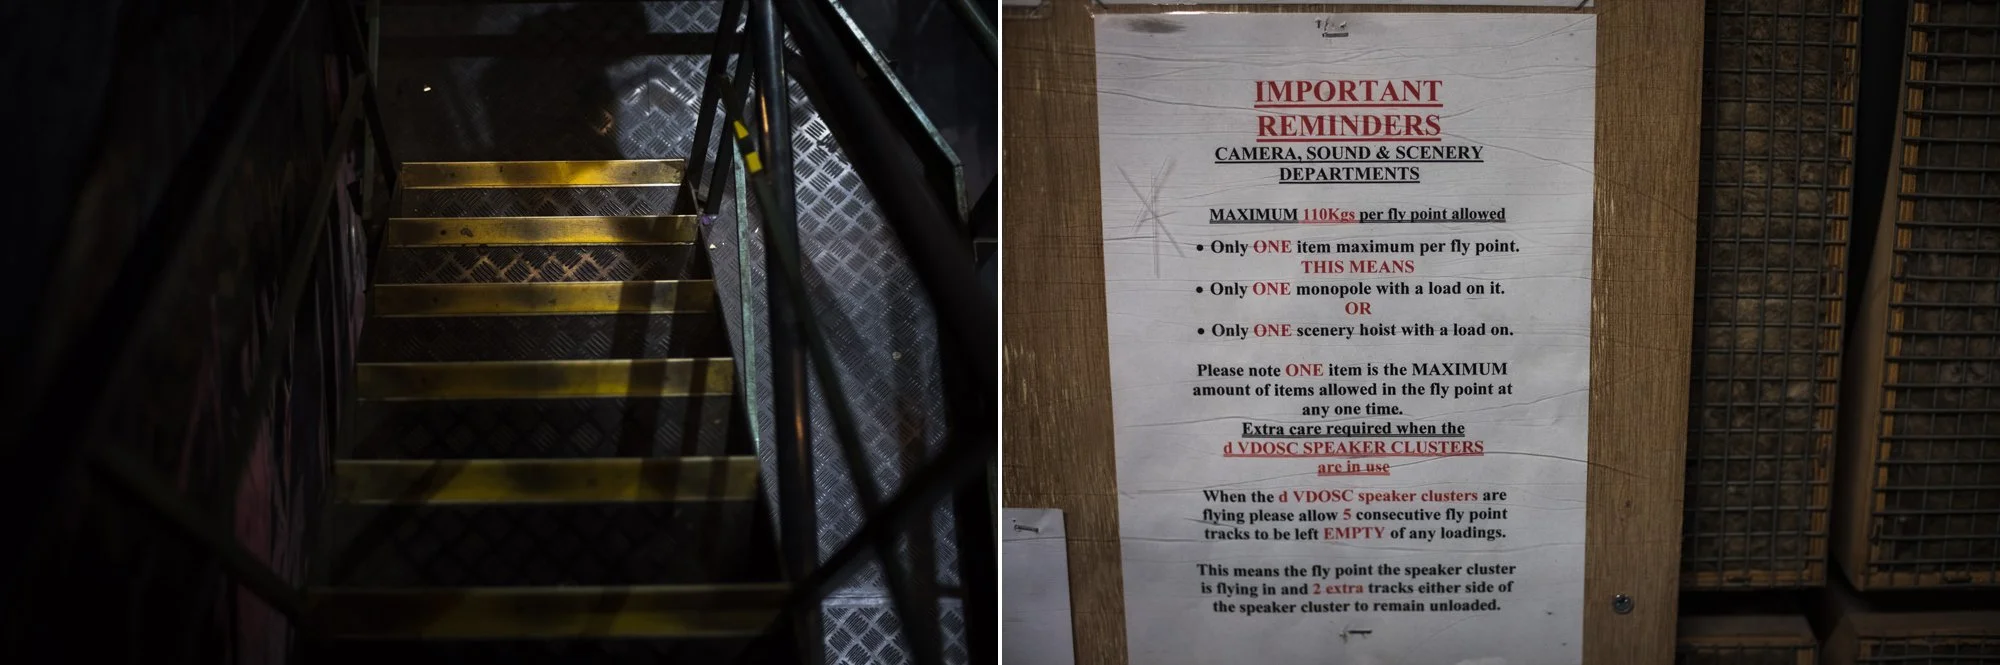 IMPORTANT
REMINDERS
CAMERA, SOUND & SCENERY
DEPARTMENTS
MAXIMUM 110Kgs per fly point allowed
• Only ONE item maximum per fly point.
THIS MEANS
• Only ONE monopole with a load on it.
OR
• Only ONE scenery hoist with a load on.
Please note ONE item is the MAXIMUM
amount of items allowed in the fly point at
any one time.
Extra care required when the
d VDOSC SPEAKER CLUSTERS
are in use
When the d VDOSC speaker clusters are
flying please allow 5 consecutive fly point
tracks to be left EMPTY of any loadings.
This means the fly point the speaker cluster
is flying in and 2 extra tracks either side of
the speaker cluster to remain unloaded.